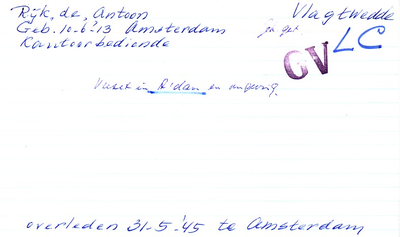 Rijk, de, Antoon Vlagtwedde
Geb. 10-6-'13 Amsterdam ja get
Kantoorbediende GV LC
Vreest in A'dam en omgeving.
overleden 31-5-'45 te Amsterdam